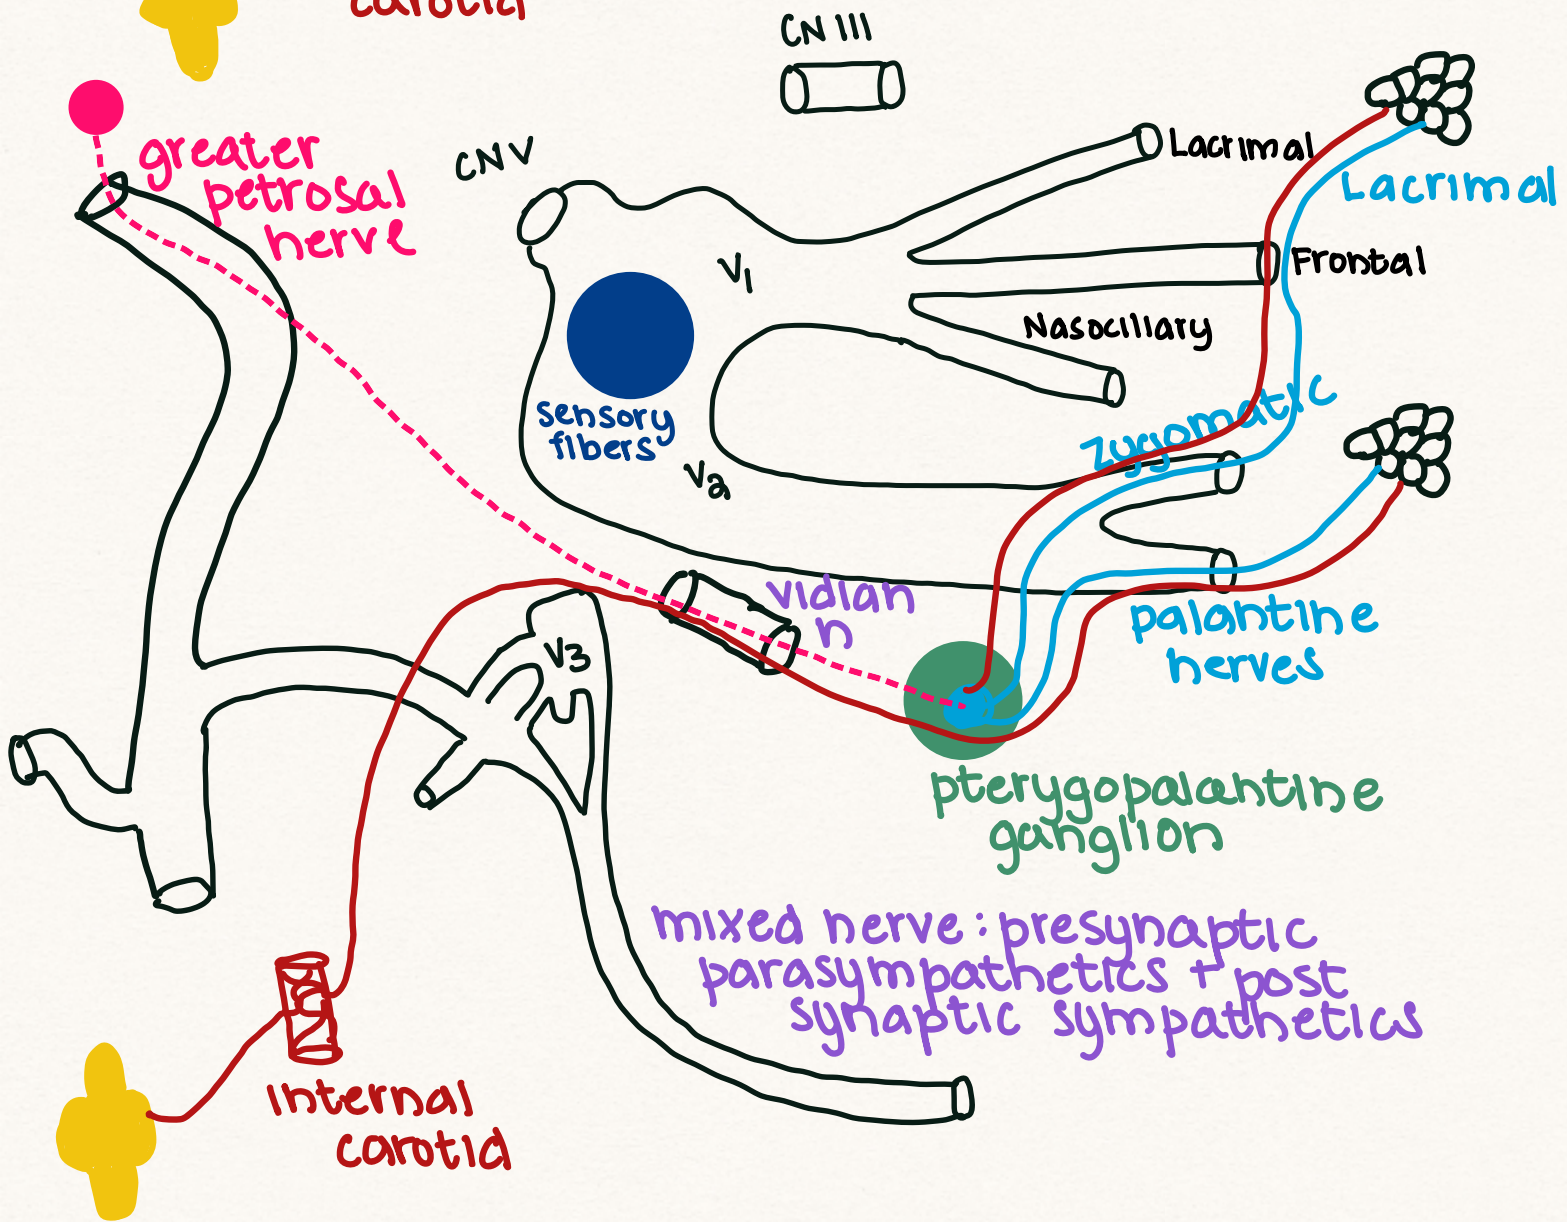 carotid
CN III
greater
petrosal
nerve
CN V
Lacrimal
Lacrimal
V1
Frontal
Nasociliary
zygomatic
sensory
fibers
V2
vidian
n
palantine
nerves
V3
pterygopalantine
ganglion
mixed nerve: presynaptic
parasympathetics + post
synaptic sympathetics
Internal
carotid